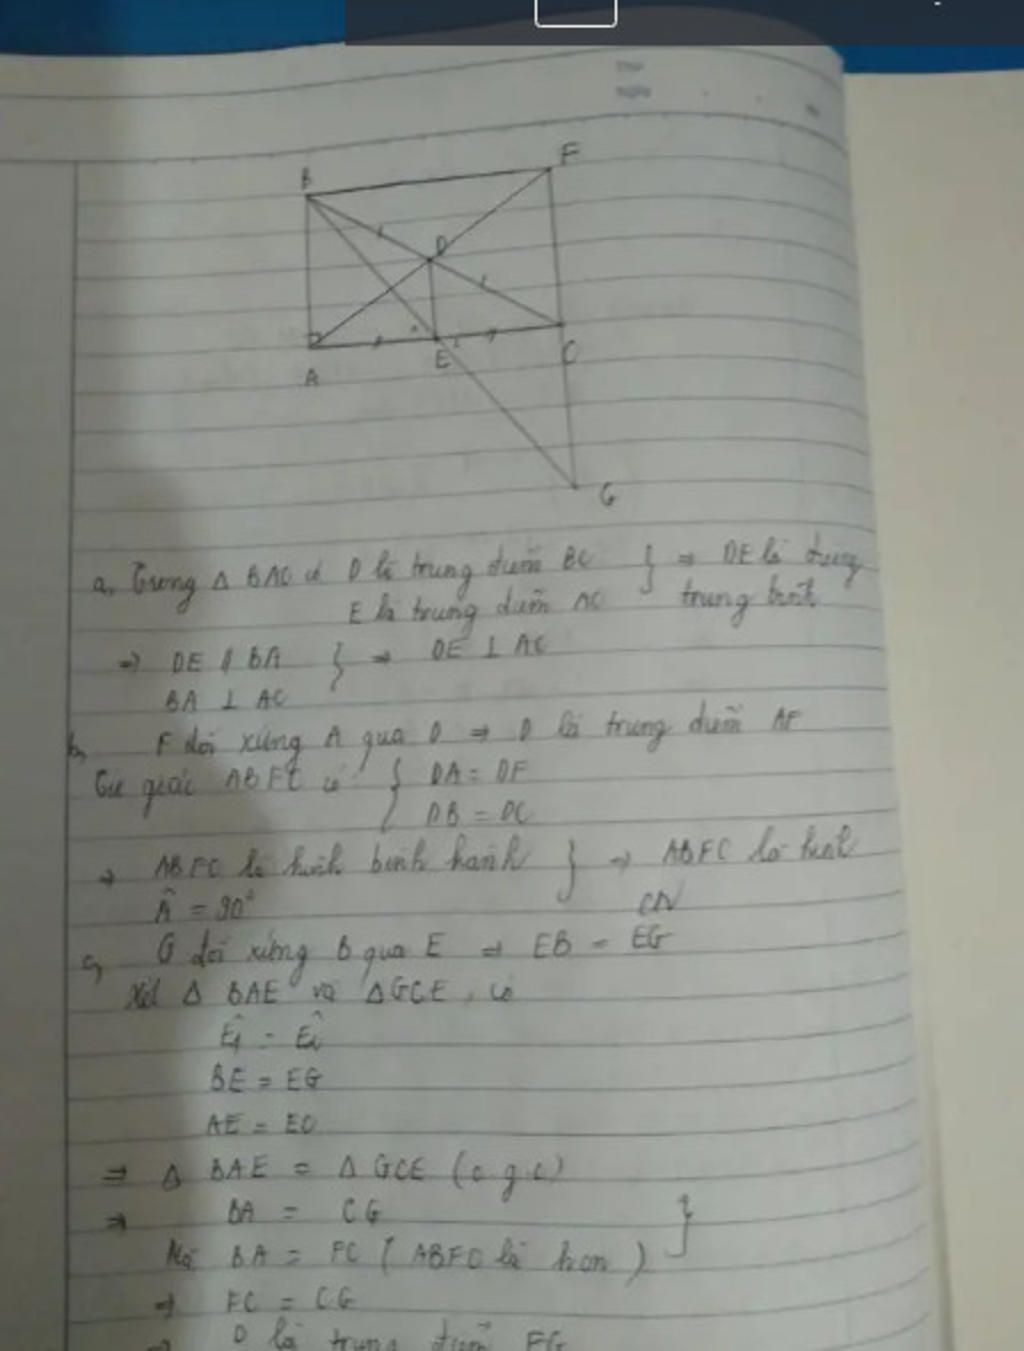 Thứ
Ngày
B
F
D
A
E
C
G
a, Trong △ BAC có D là trung điểm BC } ⇒ DE là đường
E là trung điểm AC trung bình
⇒ DE // BA } ⇒ DE ⊥ AC
BA ⊥ AC
b, F đối xứng A qua D ⇒ D là trung điểm AF
Tứ giác ABFC có { DA = DF
DB = DC
⇒ ABFC là hình bình hành } ⇒ ABFC là hình
Â = 90° CN
c, G đối xứng B qua E ⇒ EB = EG
Xét △ BAE và △GCE, có
Ê1 = Ê2
BE = EG
AE = EC
⇒ △ BAE = △ GCE (c g c)
⇒ BA = CG }
Mà BA = FC ( ABFC là hcn )
⇒ FC = CG
⇒ C là trung điểm FG